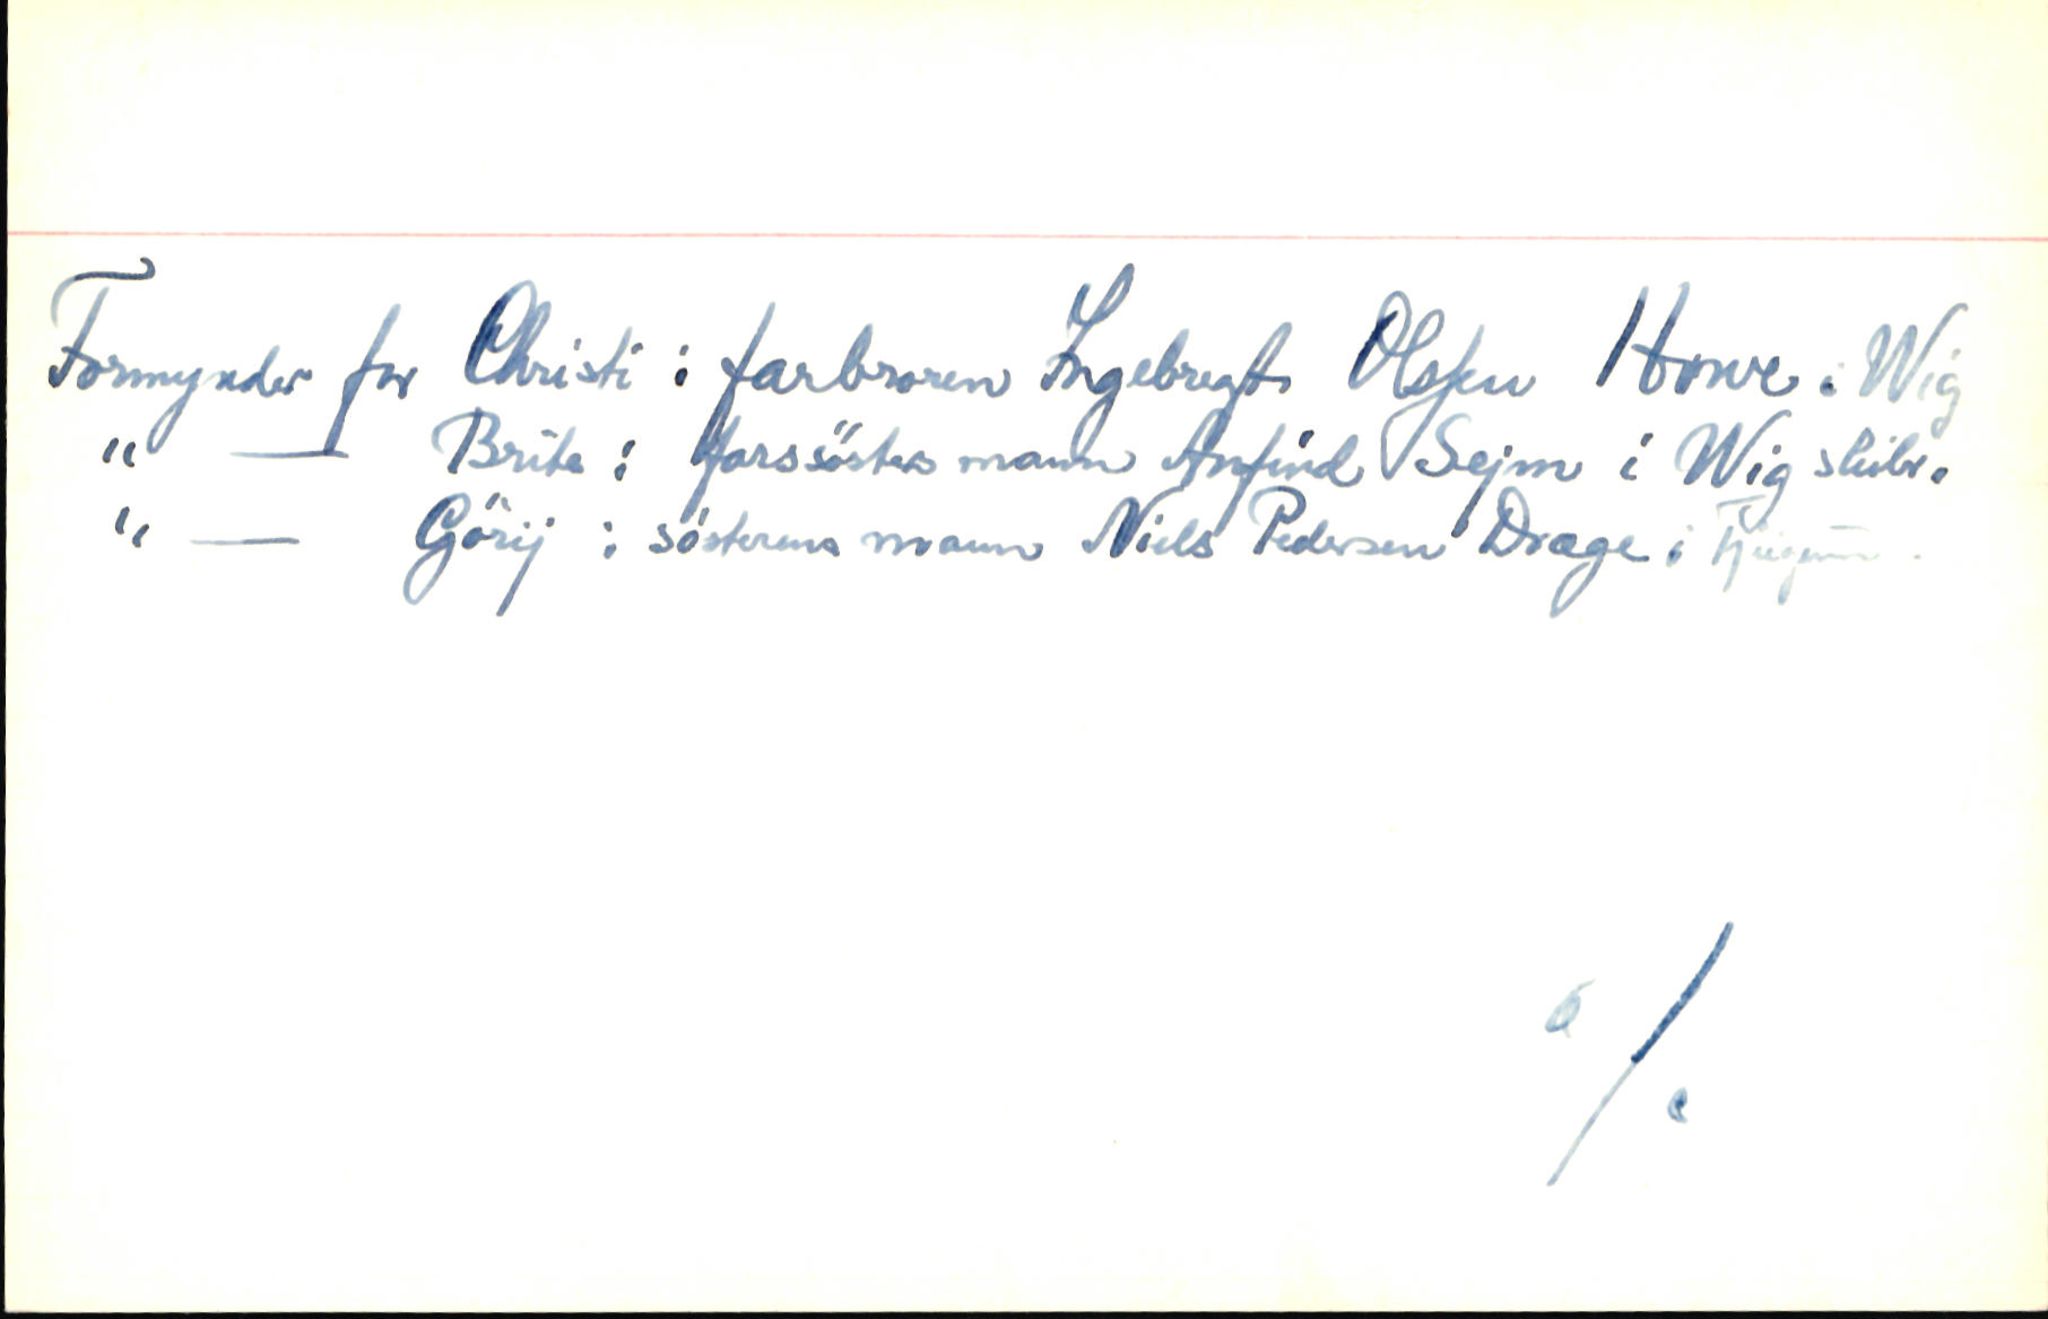 Formynder for Christi : farbroren Ingebregt Olssen Howe i Wig
" — Brite : farssösters mann Anfind Sejm i Wig skibr.
" — Görij : sösterens mann Niels Pedersen Drage i